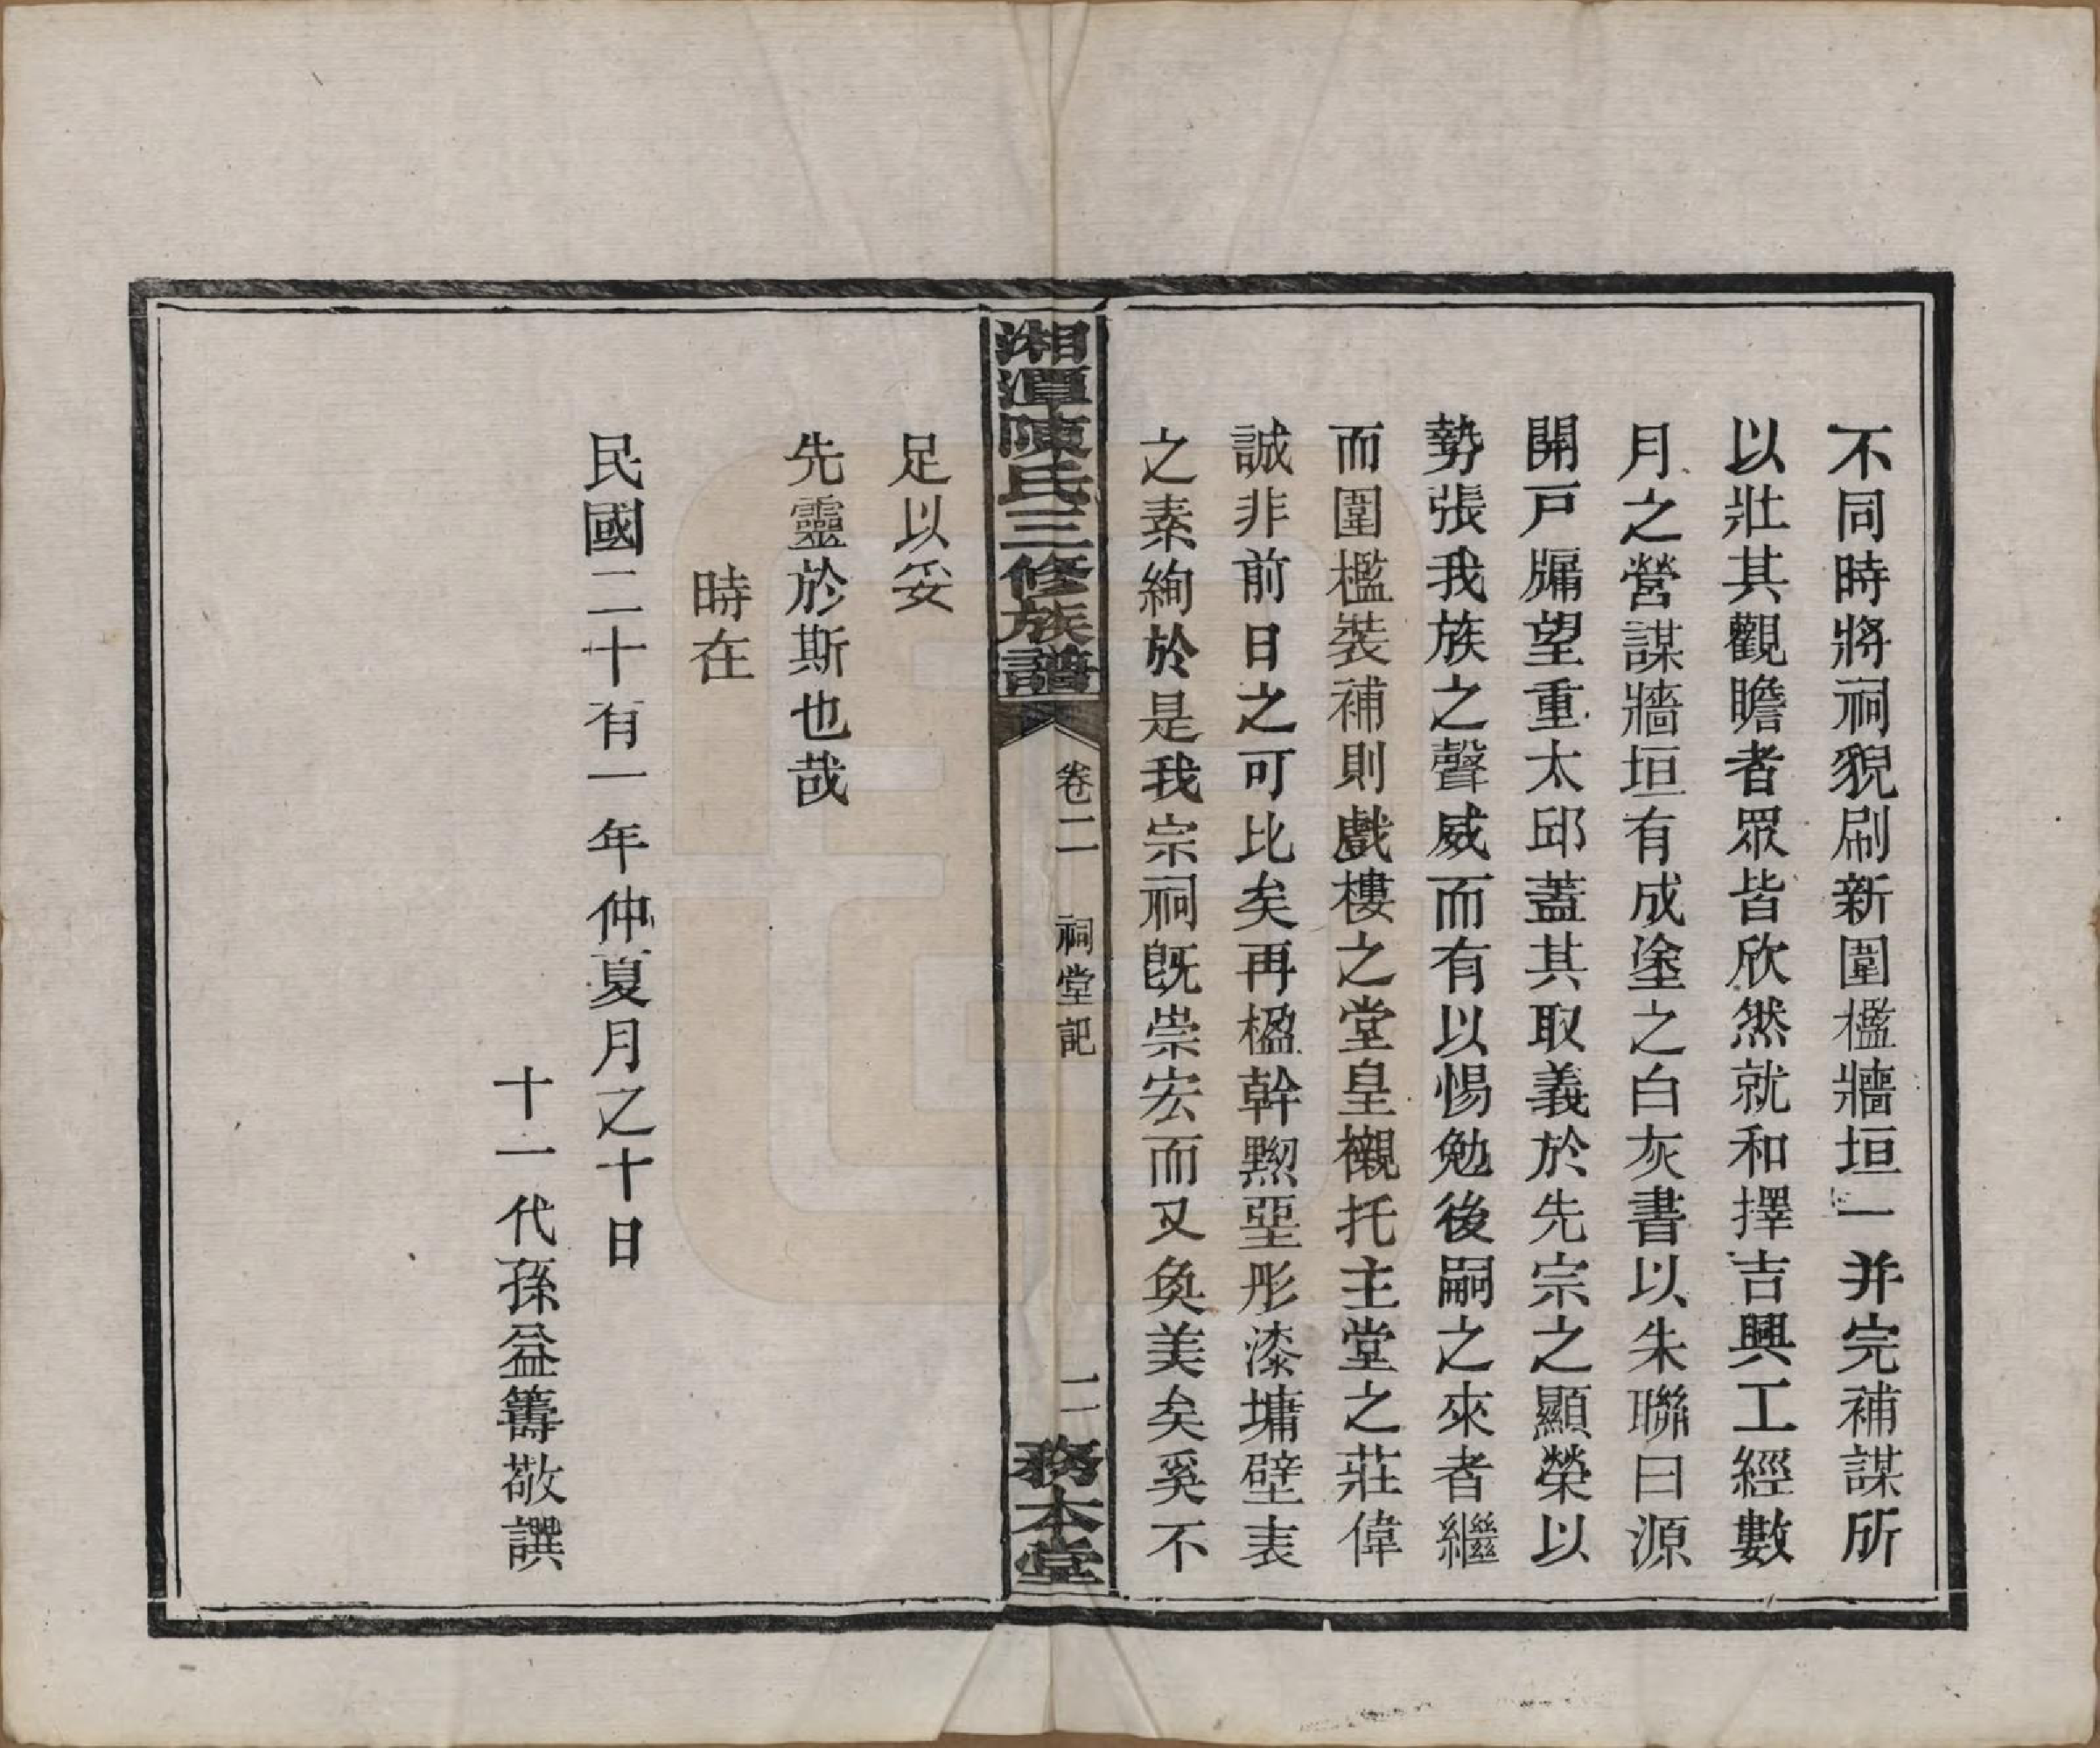 不同時將祠貌刷新圍檻牆垣一并完補謀所
以壯其觀瞻者眾皆欣然就和擇吉興工經數
月之營謀牆垣有成塗之白灰書以朱聯曰源
開戸牖望重太邱蓋其取義於先宗之顯榮以
勢張我族之聲威而有以惕勉後嗣之來者繼
而圍檻裝補則戲樓之堂皇襯托主堂之莊偉
誠非前日之可比矣再楹幹黝堊彤漆墉壁表
之素絢於是我宗祠旣崇宏而又奐美矣奚不
湘潭陳氏三修族譜
卷二 祠堂記 二
務本堂
足以妥
先靈於斯也哉
時在
民國二十有一年仲夏月之十日
十一代孫益籌敬譔